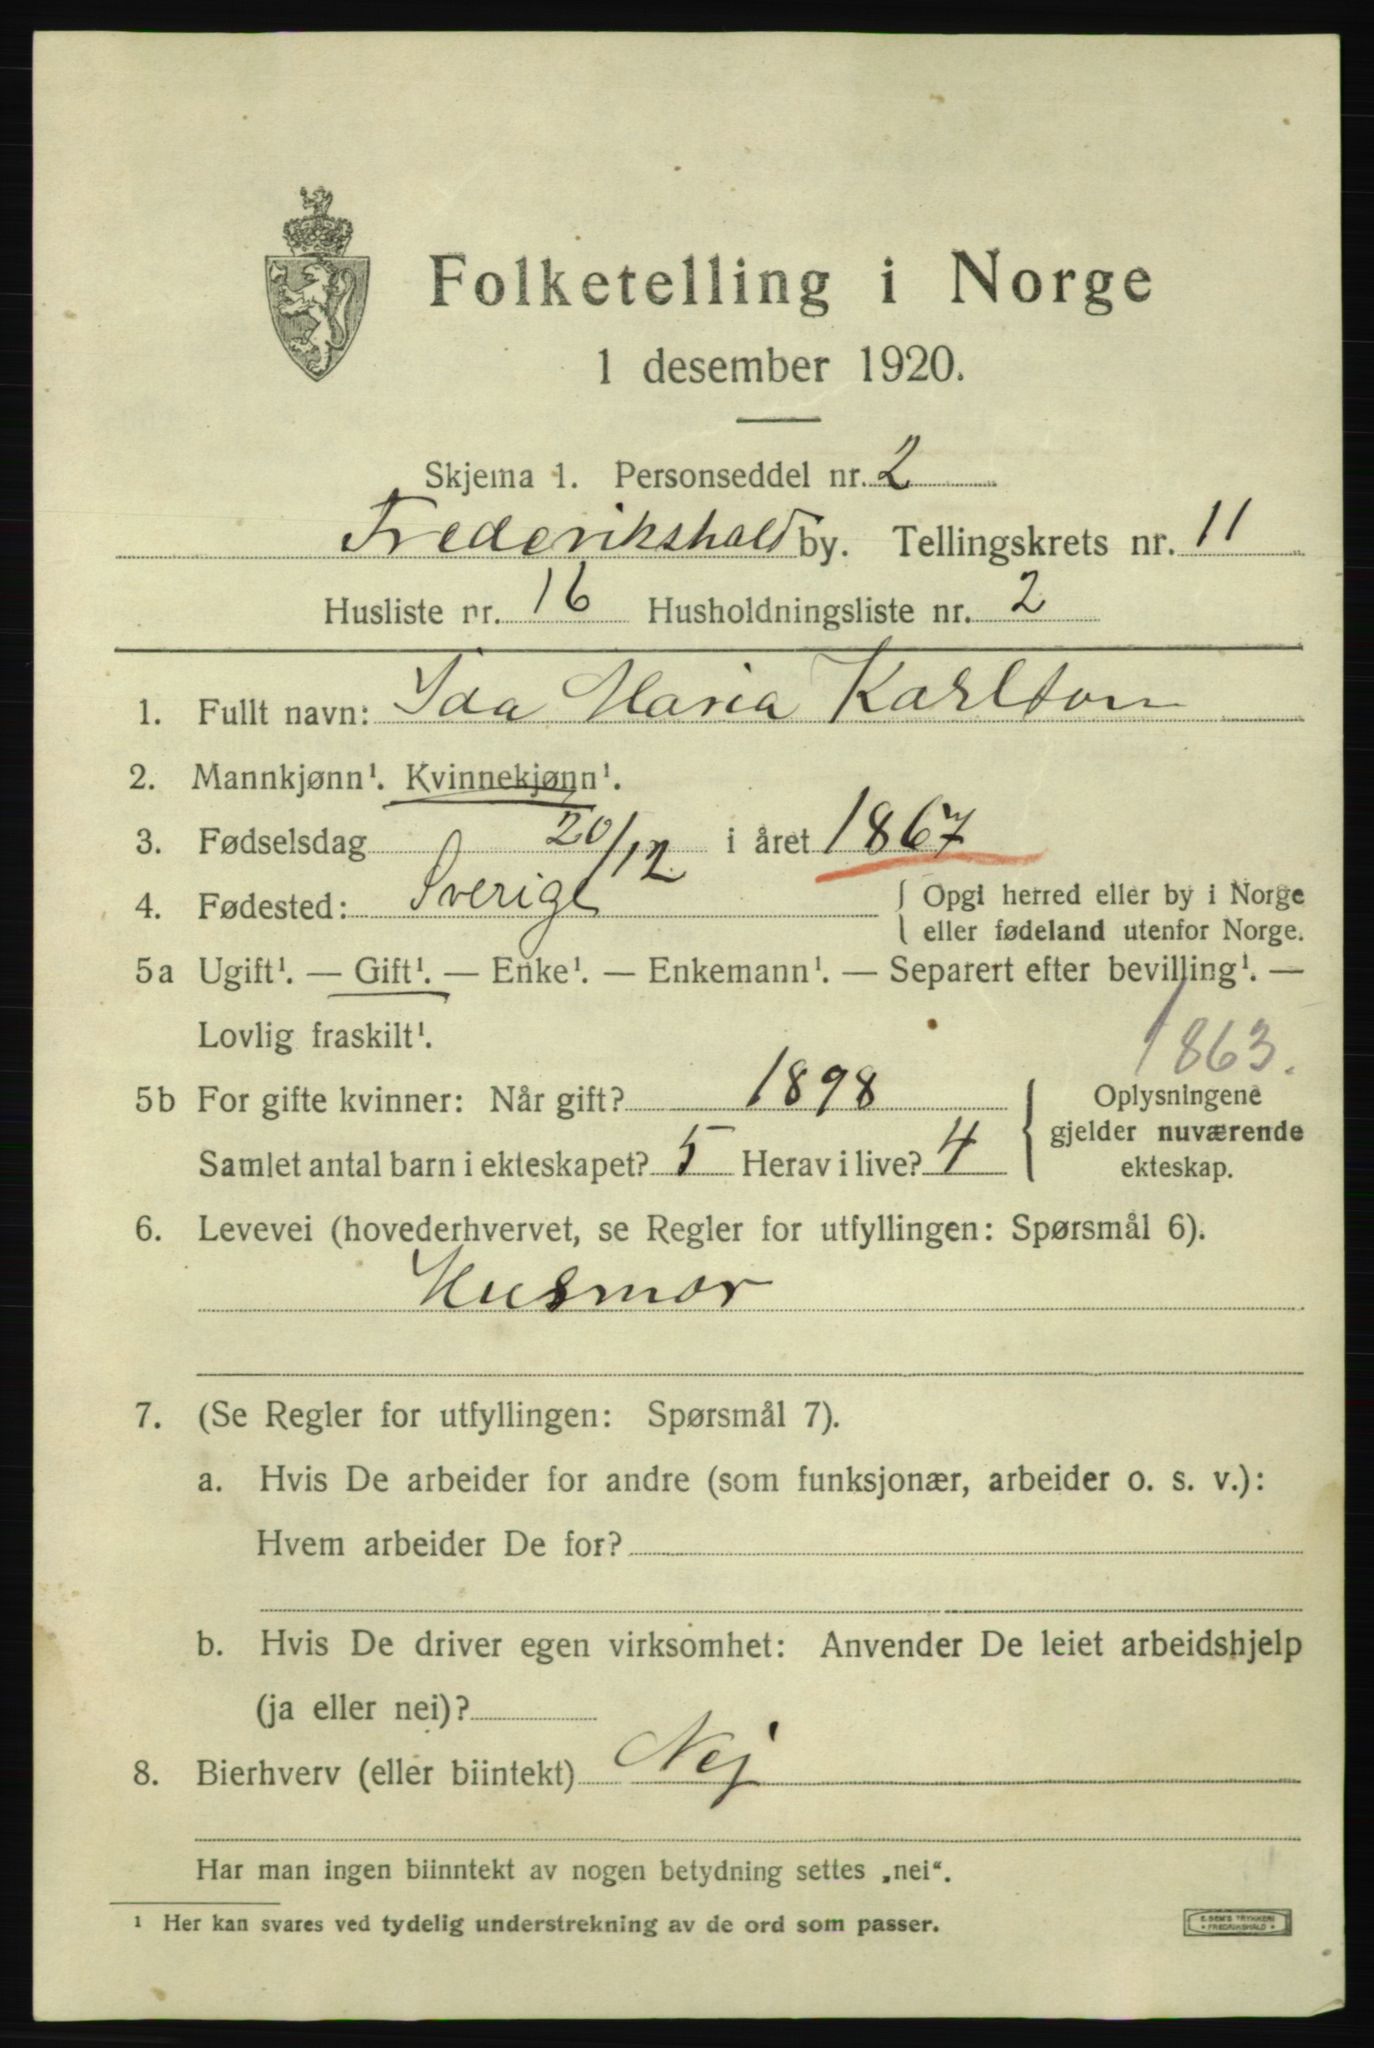 Folketelling i Norge
1 desember 1920.
Skjema 1. Personseddel nr. 2
Frederikshald by. Tellingskrets nr. 11
Husliste nr. 16 Husholdningsliste nr. 2
1. Fullt navn: Ida Maria Karlson
2. Mannkjønn¹. Kvinnekjønn¹.
3. Fødselsdag 20/12 i året 1867
4. Fødested: Sverige { Opgi herred eller by i Norge
eller fødeland utenfor Norge.
5a Ugift¹. — Gift¹. — Enke¹. — Enkemann¹. — Separert efter bevilling¹. —
Lovlig fraskilt¹.
1863.
5b For gifte kvinner: Når gift? 1898
Samlet antal barn i ekteskapet? 5 Herav i live? 4
Oplysningene
gjelder nuværende
ekteskap.
6. Levevei (hovederhvervet, se Regler for utfyllingen: Spørsmål 6).
Husmor
7. (Se Regler for utfyllingen: Spørsmål 7).
a. Hvis De arbeider for andre (som funksjonær, arbeider o. s. v.):
Hvem arbeider De for?
b. Hvis De driver egen virksomhet: Anvender De leiet arbeidshjelp
(ja eller nei)?
8. Bierhverv (eller biintekt) Nej
Har man ingen biinntekt av nogen betydning settes „nei“.
¹ Her kan svares ved tydelig understrekning av de ord som passer.
E. SEM'S TRYKKERI
• FREDRIKSHALD •